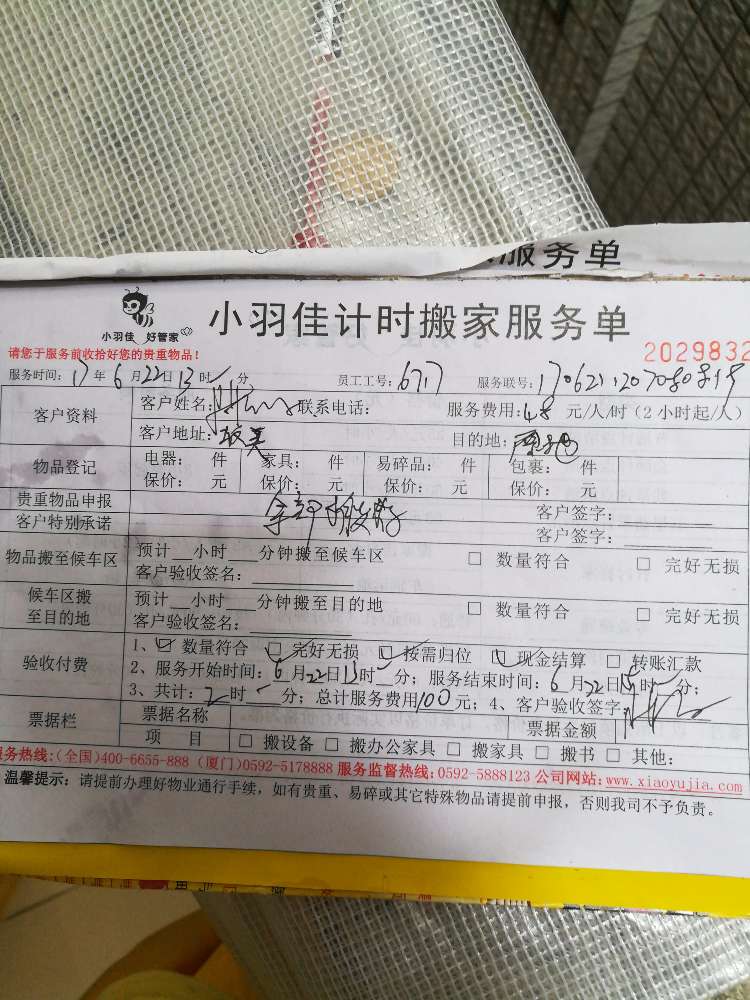 服务单
小羽佳 好管家
小羽佳计时搬家服务单
请您于服务前收拾好您的贵重物品!
2029832
服务时间: 17年6月22日13时 分 员工工号: 6717 服务联号:
客户资料 客户姓名: 联系电话: 服务费用: 48 元/人/时(2小时起/人)
客户地址: 目的地:
物品登记 电器: 件 家具: 件 易碎品: 件 包裹: 件
保价: 元 保价: 元 保价: 元 保价: 元
贵重物品申报 客户签字:
客户特别承诺 客户签字:
物品搬至候车区 预计__小时__分钟搬至候车区 □ 数量符合 □ 完好无损
客户验收签名:
候车区搬至目的地 预计__小时__分钟搬至目的地 □ 数量符合 □ 完好无损
客户验收签名:
验收付费 1、☑ 数量符合 ☑ 完好无损 ☑ 按需归位 ☑ 现金结算 □ 转账汇款
2、服务开始时间: 6月22日13时 分; 服务结束时间: 6月22日15时 分;
3、共计: 2时 分; 总计服务费用100元; 4、客户验收签字:
票据栏 票据名称 票据金额
项 目 □ 搬设备 □ 搬办公家具 □ 搬家具 □ 搬书 □ 其他:
务热线:(全国)400-6655-888 (厦门)0592-5178888 服务监督热线: 0592-5888123 公司网站: www.xiaoyujia.com
温馨提示: 请提前办理好物业通行手续, 如有贵重、易碎或其它特殊物品请提前申报, 否则我司不予负责。